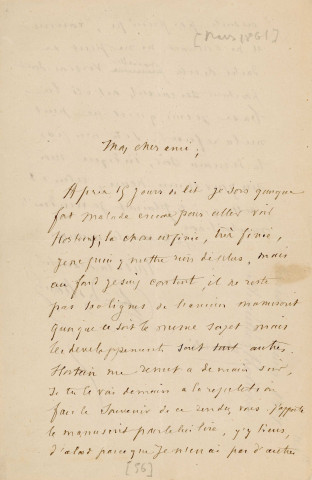 [Mars 1861]
Mon cher ami,
Après 15 jours de lit je sors quoique
fort malade encore pour aller voir
Hostein, la chose est finie, très finie,
je ne puis y mettre rien de plus, mais
au fond je suis content, il ne reste
pas dix lignes de l'ancien manuscrit
quoique ce soit le même sujet mais
les développements sont tout autres.
Hostein me remet a demain soir,
si tu le vois demain a la repetition
fais le souvenir de ce rendez vous. J'apporte
le manuscrit pour le lui lire, j'y tiens,
d'abord parce que je n'en ai pas d'autre
[56]